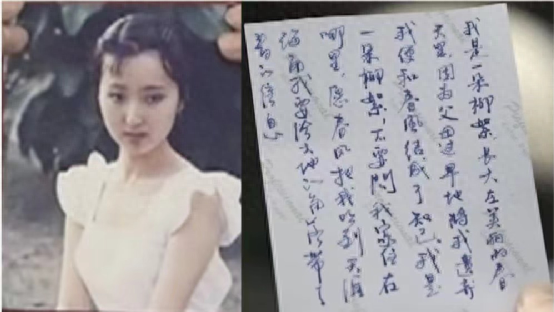 我是一朵柳絮长大在美丽的春
天里,因为父母过早地将我遗弃
我便和春风结成了知己,我是
一朵柳絮,不要问我家住在
哪里,愿春风把我吹到天涯
海角我要给大地的角落带去
春的信息